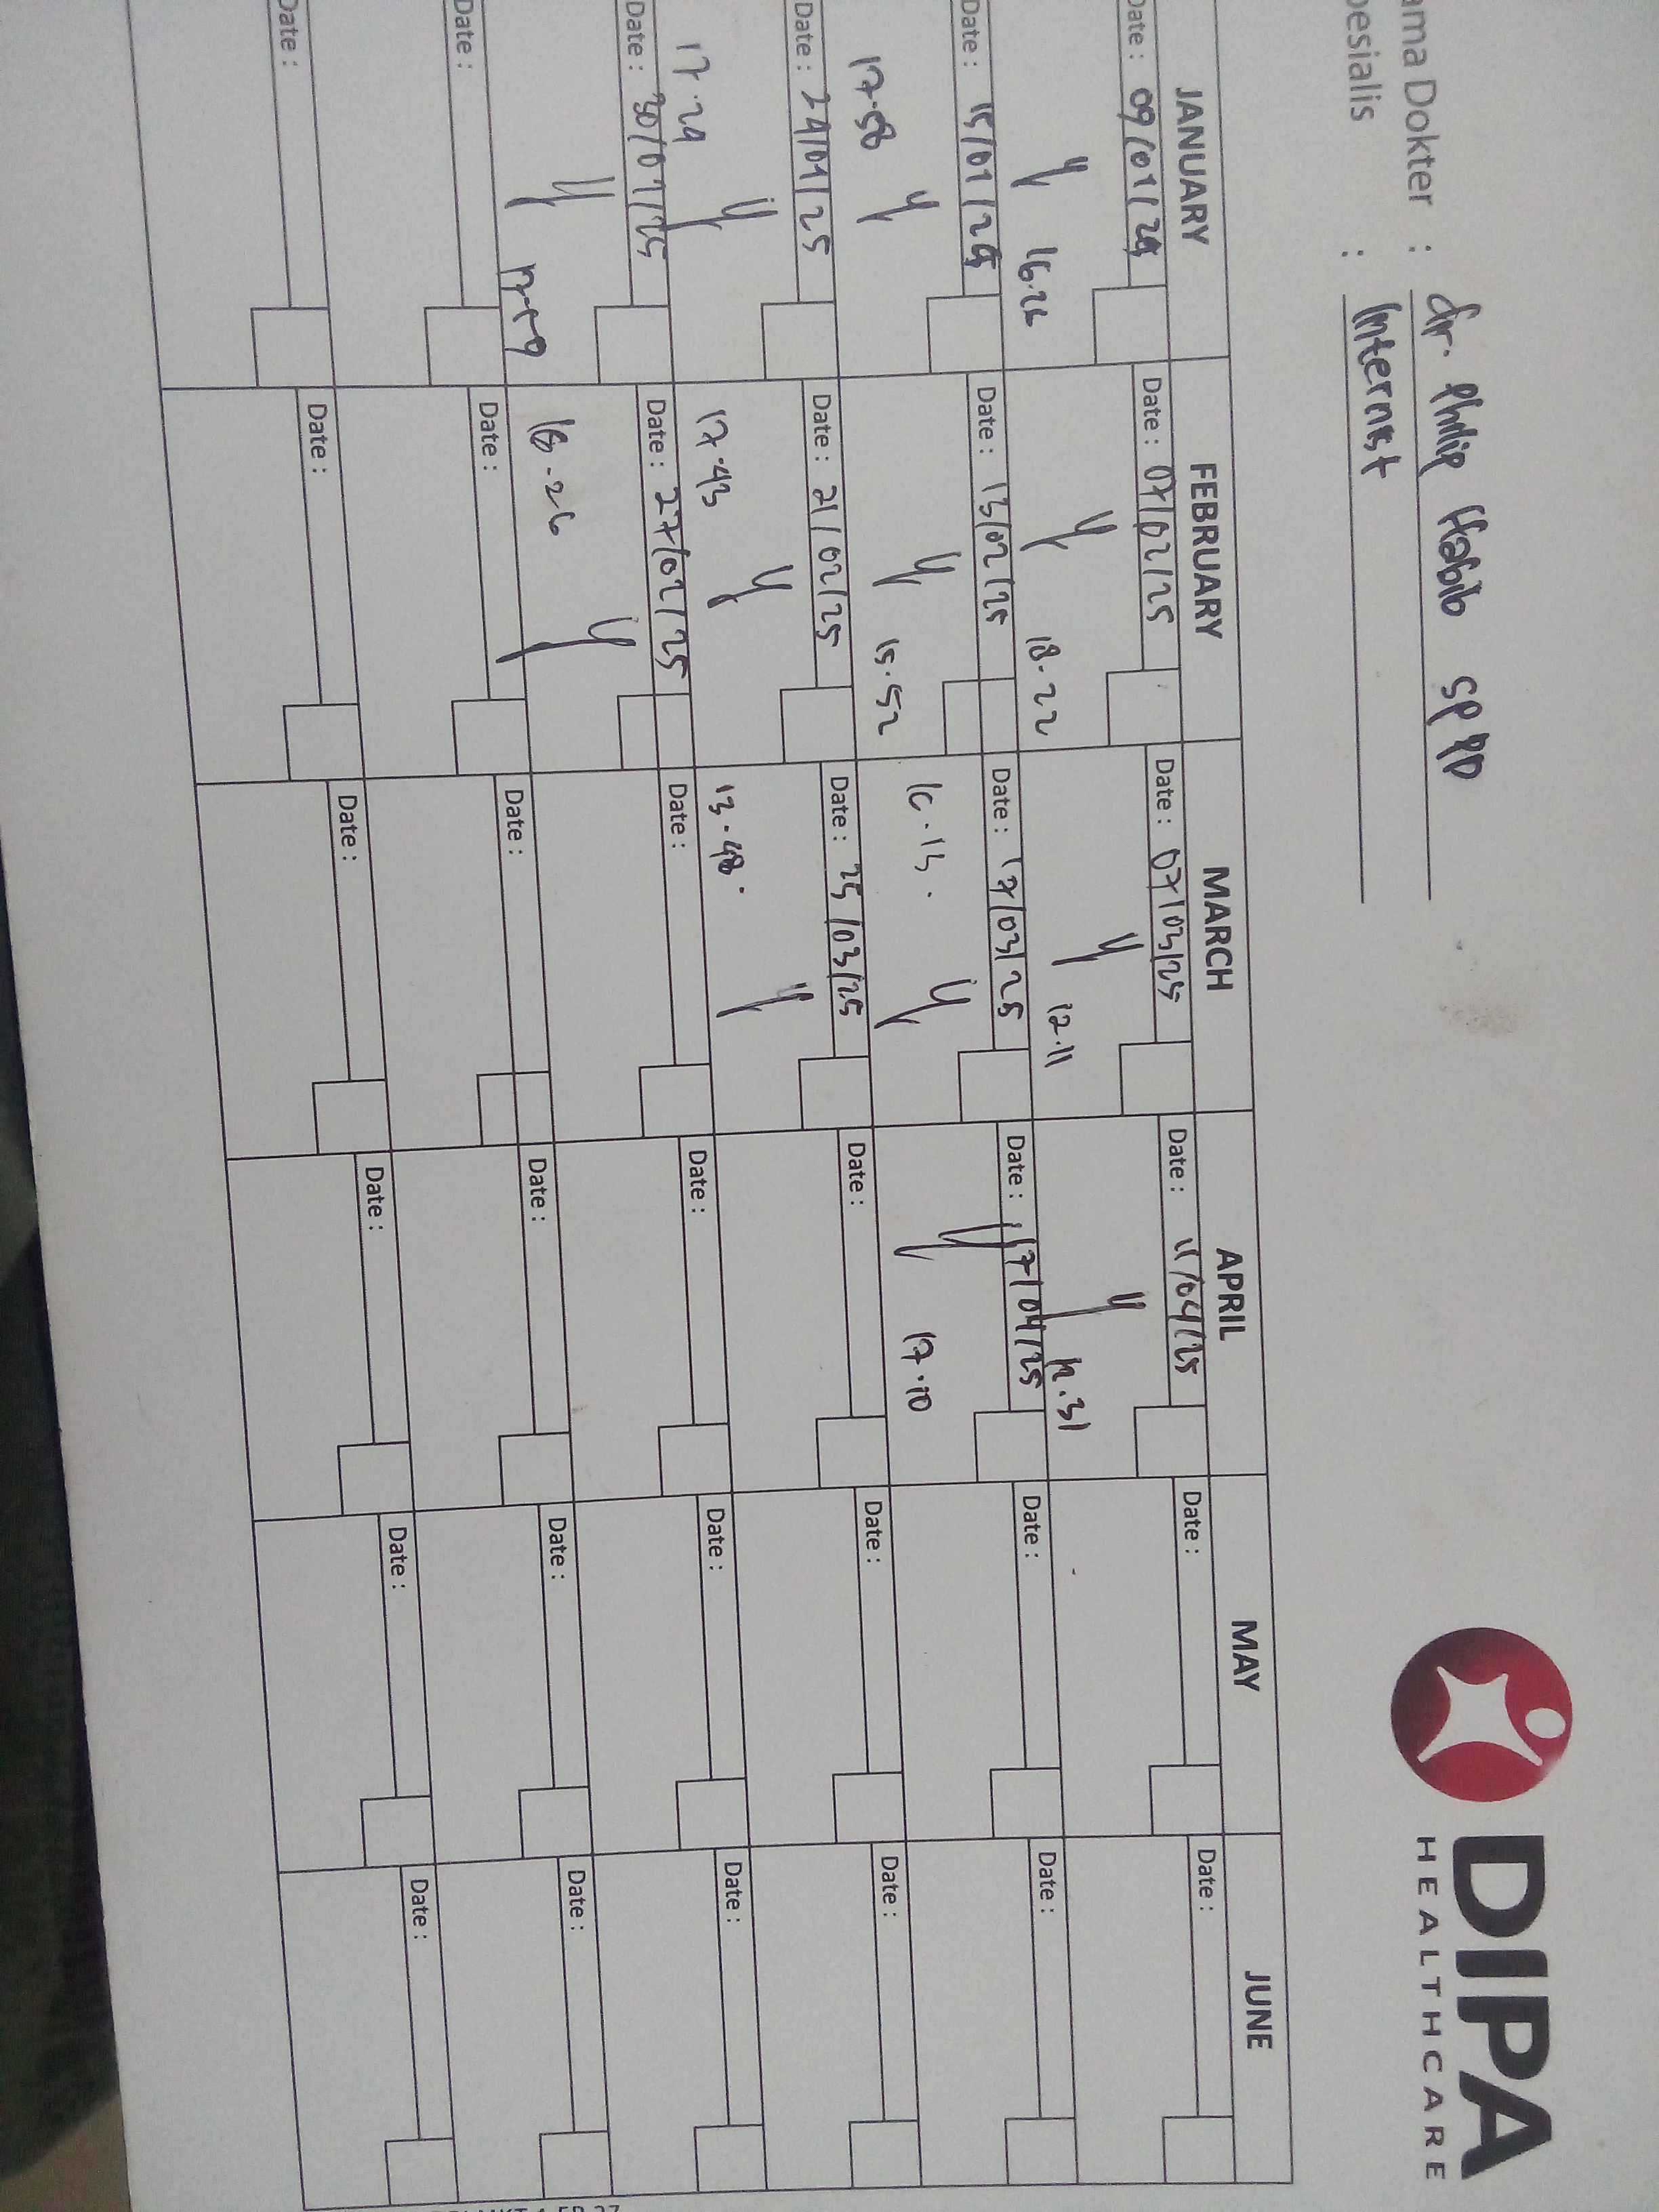 DIPA
HEALTHCARE
ama Dokter : dr. Philip Habib SpPD
pesialis : Internist
JANUARY FEBRUARY MARCH APRIL MAY JUNE
Date : 09/01/25 Date : 07/02/25 Date : 07/03/25 Date : 11/04/25 Date : Date :
16.26 18.22 12.11 .31
Date : 15/01/25 Date : 13/02/25 Date : 17/03/25 Date : 17/04/25 Date : Date :
17.58 15.52 .13. 17.10
Date : 24/01/25 Date : 21/02/25 Date : 25/03/25 Date : Date : Date :
17.29 17.43 13.48.
Date : 30/01/25 Date : 27/02/25 Date : Date : Date : Date :
16.26
Date : Date : Date : Date : Date : Date :
Date : Date : Date : Date : Date : Date :